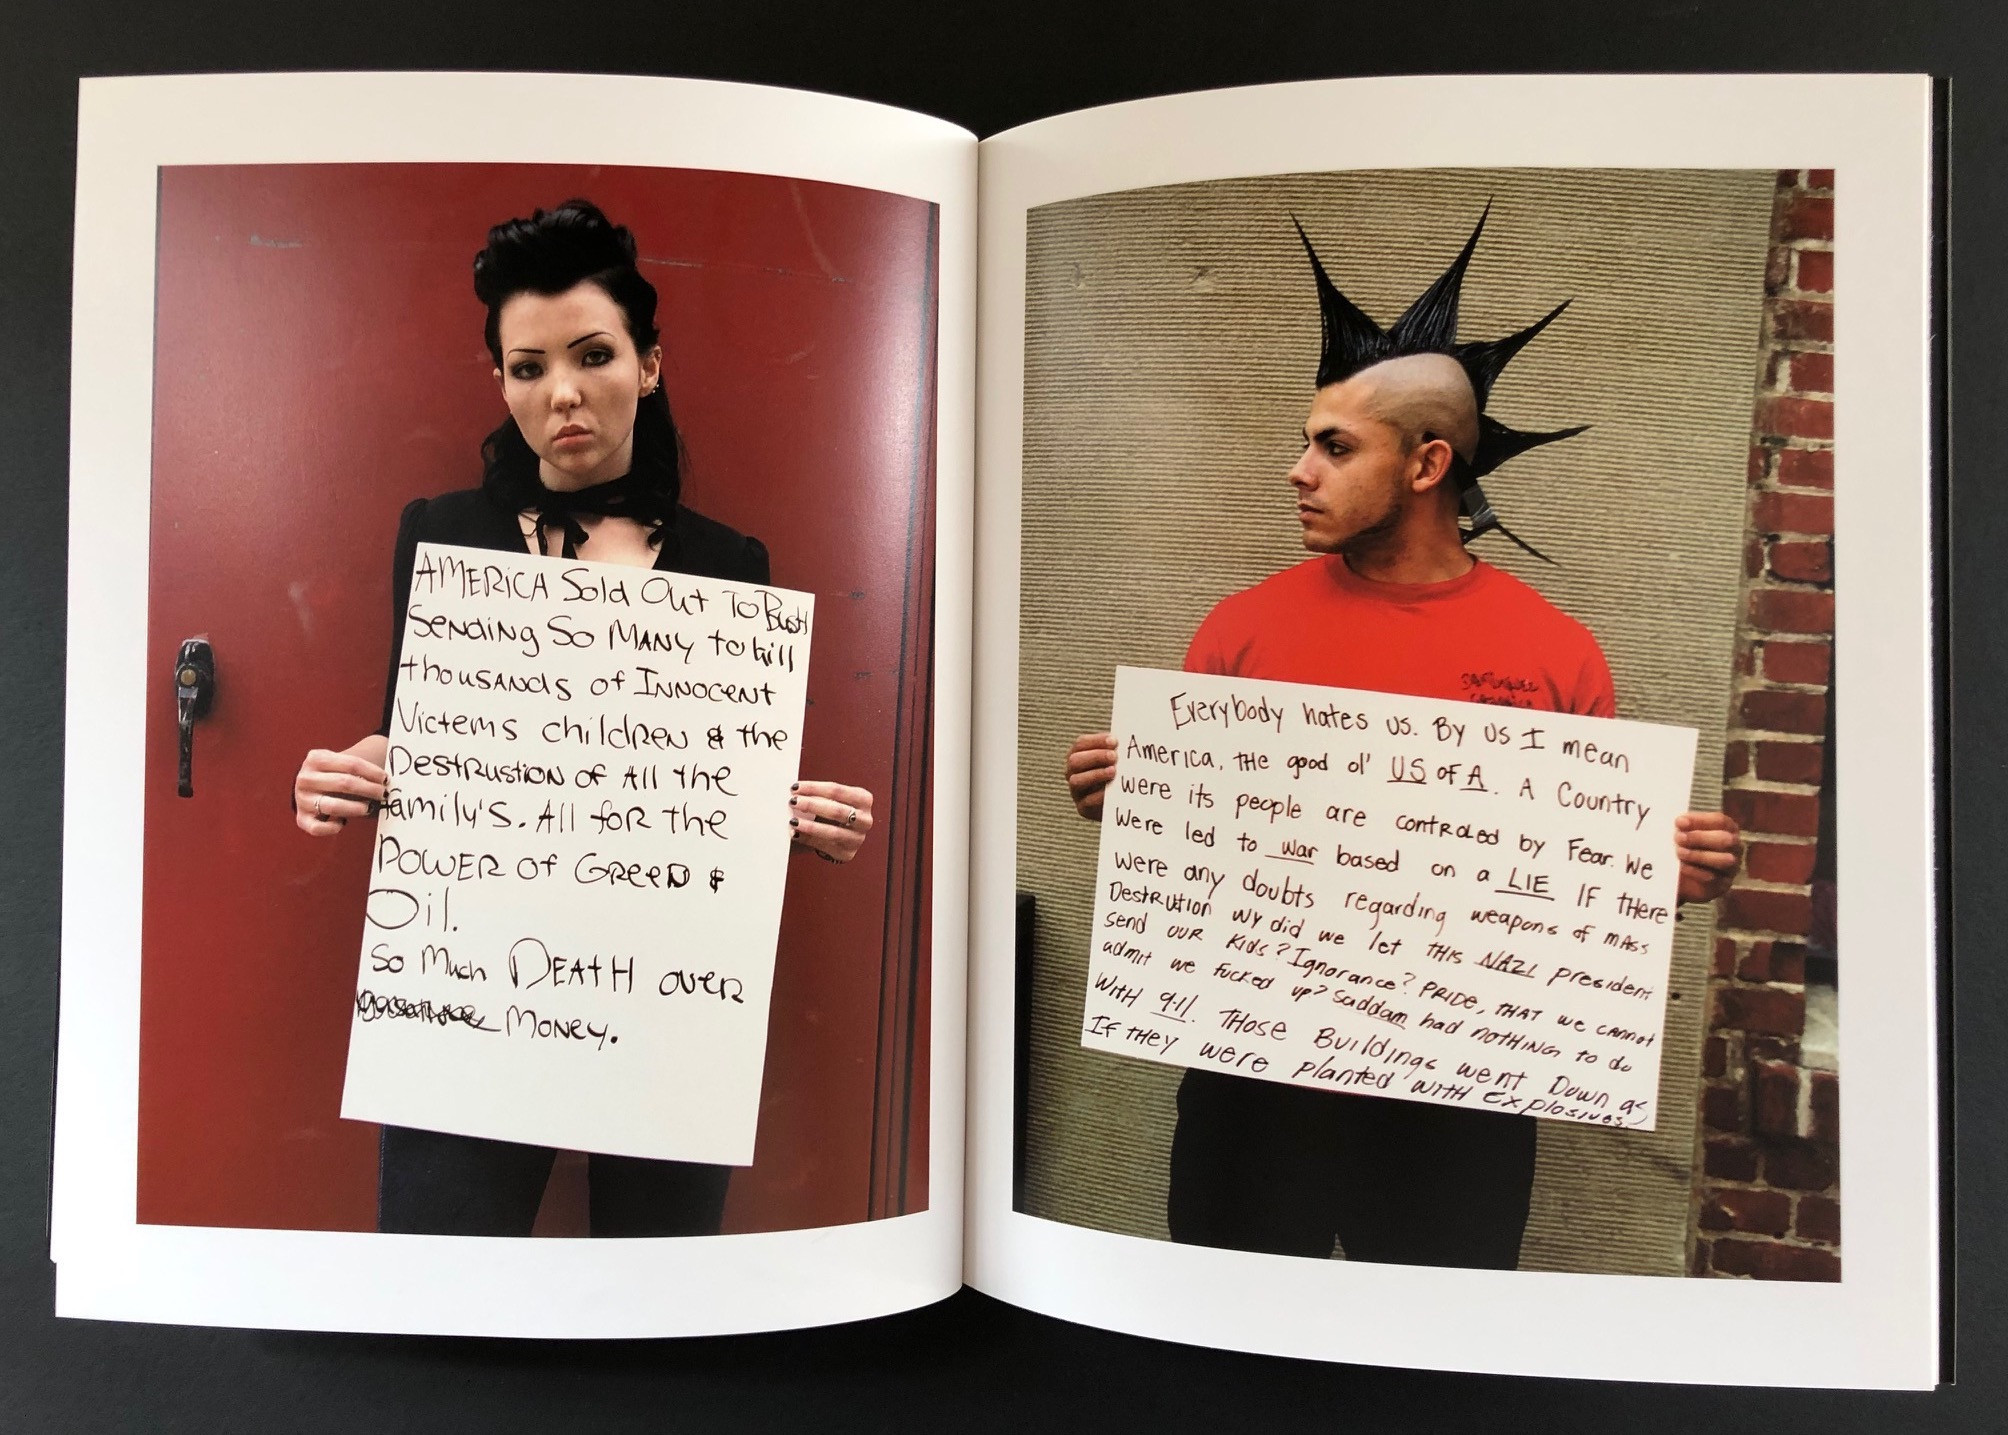 AMERICA Sold Out To Bush
Sending So MANY to kill
thousands of Innocent
Victems children & the
Destrustion of All the
family's. All for the
Power of Greed &
Oil.
So Much DEATH over
Money.
Everybody hates us. By us I mean
America, the good ol' US of A. A Country
were its people are controled by Fear. We
were led to war based on a LIE IF there
were any doubts regarding weapons of mass
Destrution wy did we let THIS NAZI president
send our kids? Ignorance? PRIDE, THAT we cannot
admit we fucked up? Saddam had nothing to do
WITH 9.11. Those Buildings went Down as
If they were planted with Explosives.